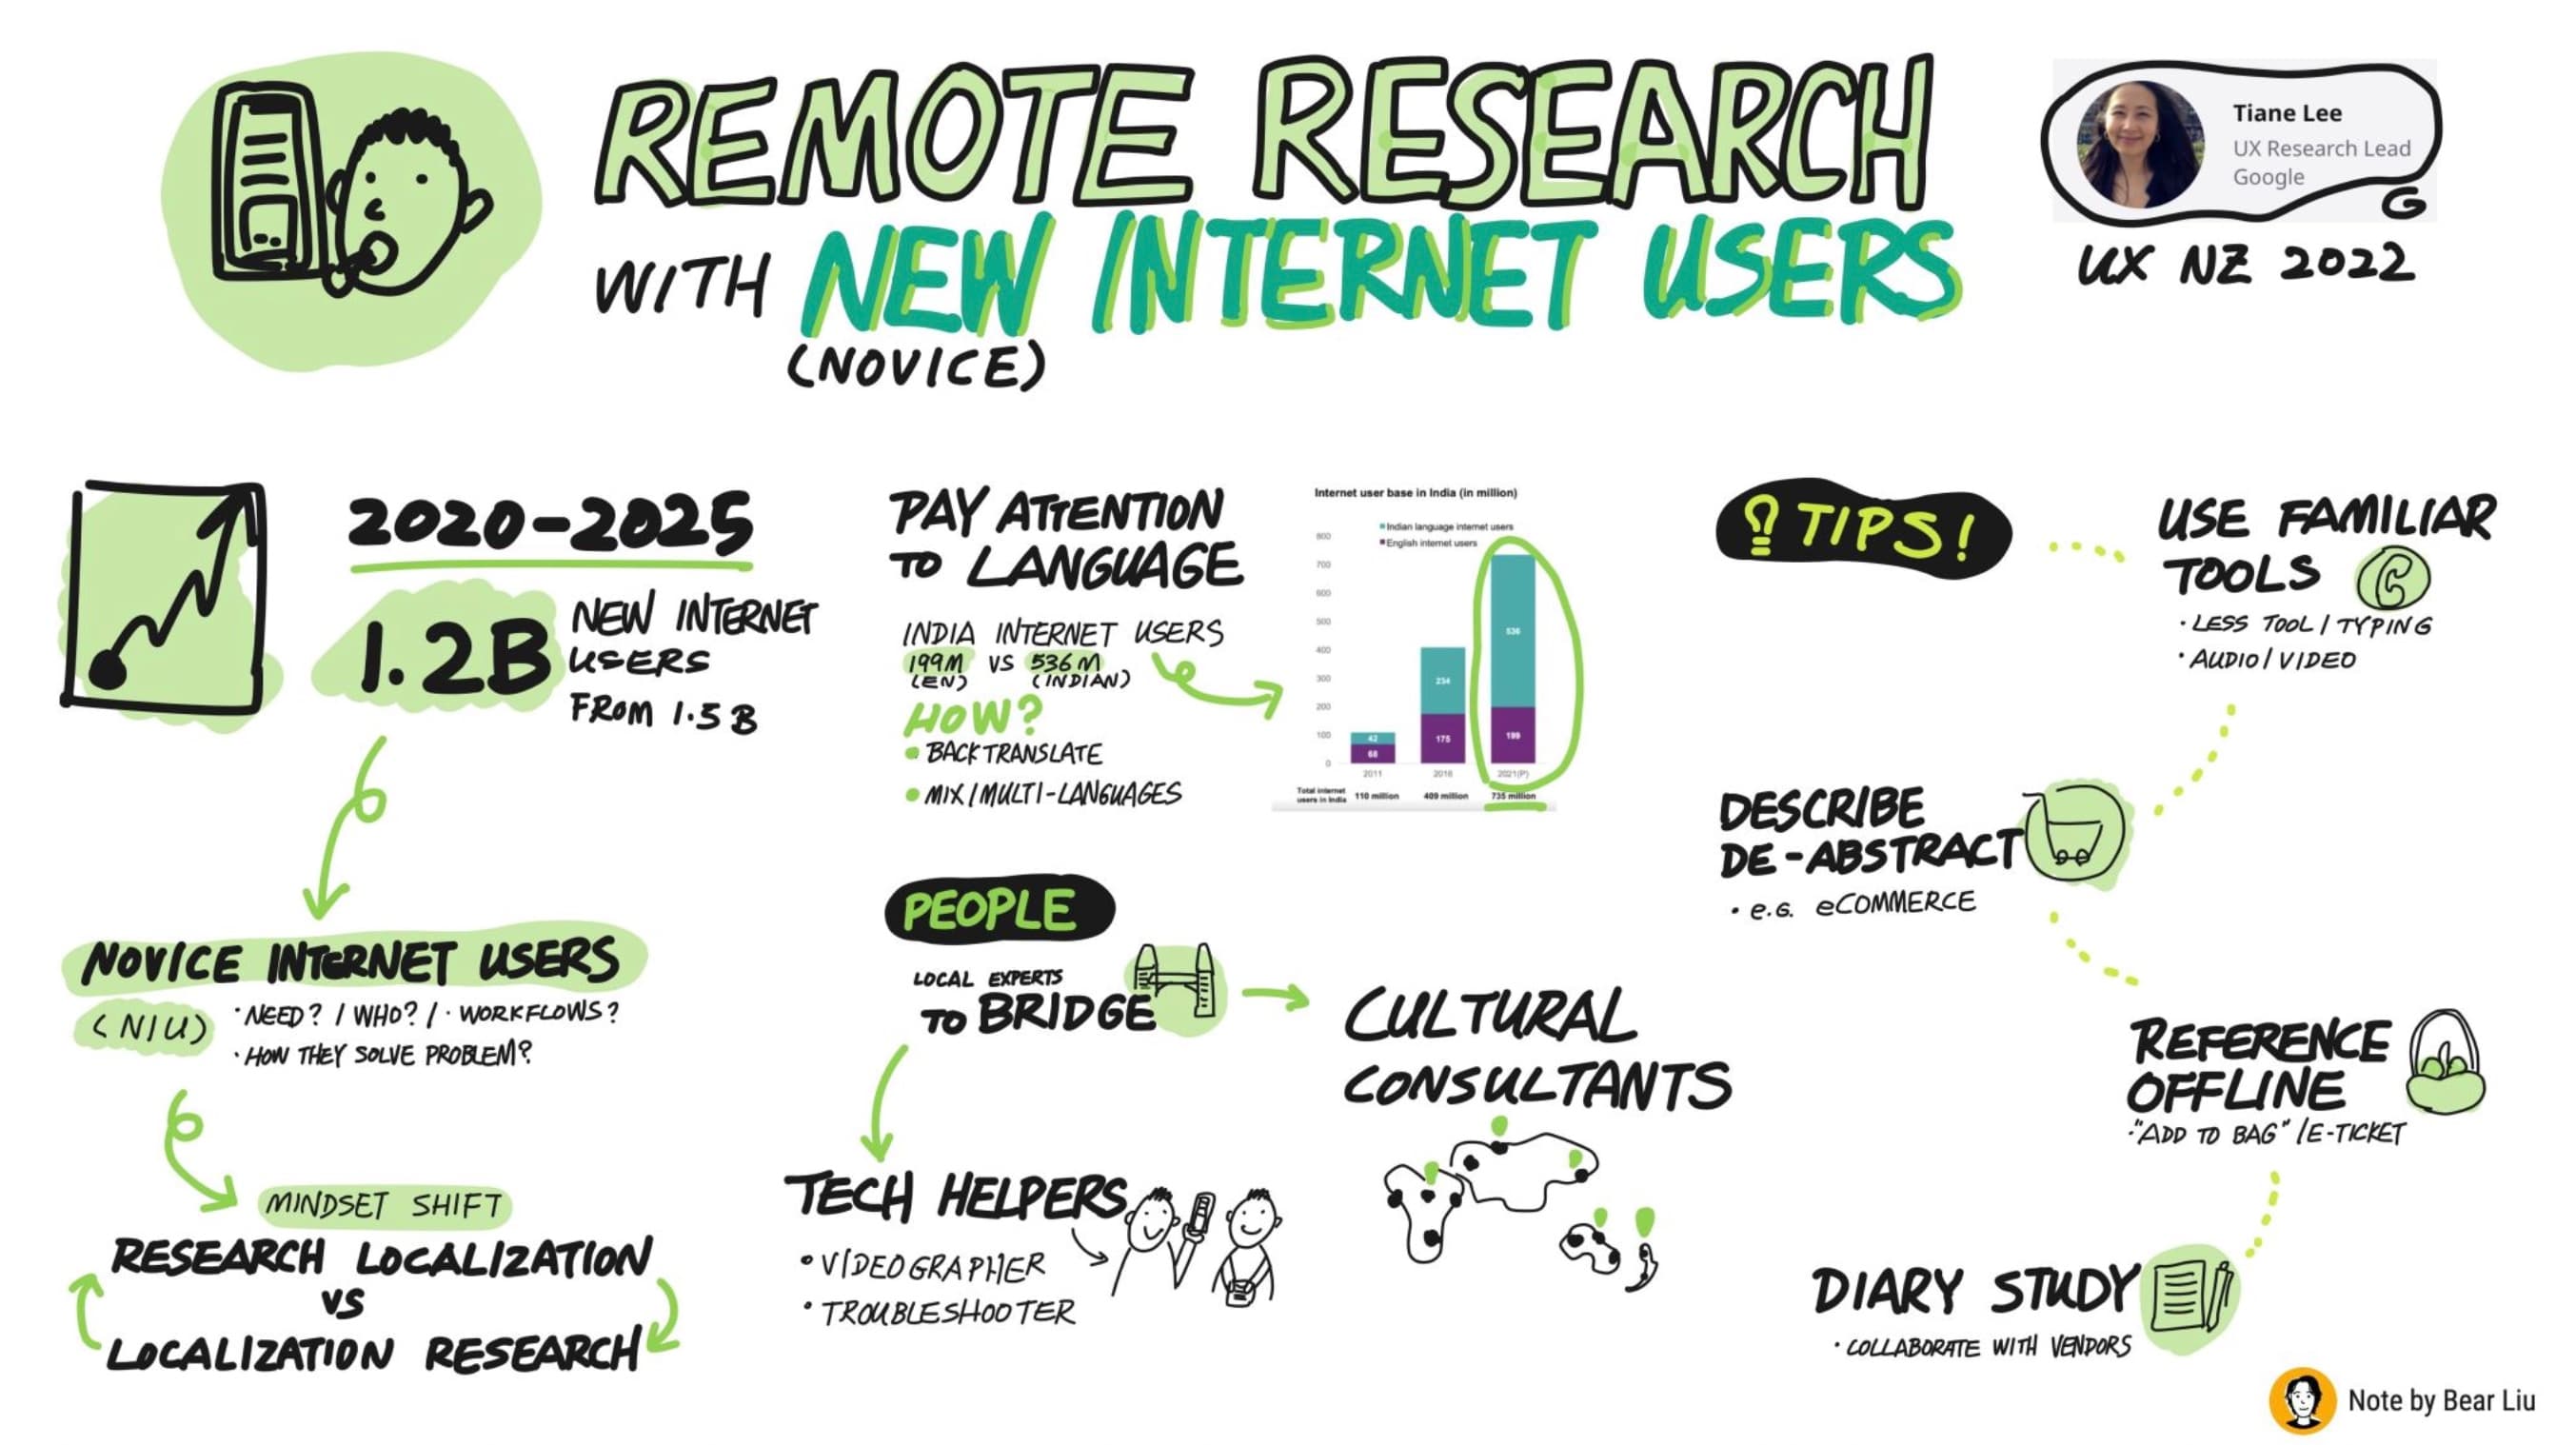 REMOTE RESEARCH
WITH NEW INTERNET USERS
(NOVICE)
Tiane Lee
UX Research Lead
Google
G
UX NZ 2022
2020-2025
1.2B
NEW INTERNET
USERS
FROM 1.5 B
NOVICE INTERNET USERS
(NIU)
· NEED? / WHO? / · WORKFLOWS?
· HOW THEY SOLVE PROBLEM?
MINDSET SHIFT
RESEARCH LOCALIZATION
VS
LOCALIZATION RESEARCH
PAY ATTENTION
TO LANGUAGE
INDIA INTERNET USERS
199M VS 536 M
(EN) (INDIAN)
HOW?
• BACKTRANSLATE
• MIX/MULTI-LANGUAGES
Internet user base in India (in million)
Indian language internet users
English internet users
800
700
600
500
400
300
200
100
0
42
68
234
175
536
199
2011 2016 2021(P)
Total internet
users in India 110 million 409 million 735 million
PEOPLE
LOCAL EXPERTS
TO BRIDGE
CULTURAL
CONSULTANTS
TECH HELPERS
• VIDEOGRAPHER
• TROUBLESHOOTER
TIPS!
USE FAMILIAR
TOOLS
· LESS TOOL / TYPING
· AUDIO / VIDEO
DESCRIBE
DE-ABSTRACT
· e.G. eCOMMERCE
REFERENCE
OFFLINE
·"ADD TO BAG" /E-TICKET
DIARY STUDY
· COLLABORATE WITH VENDORS
Note by Bear Liu